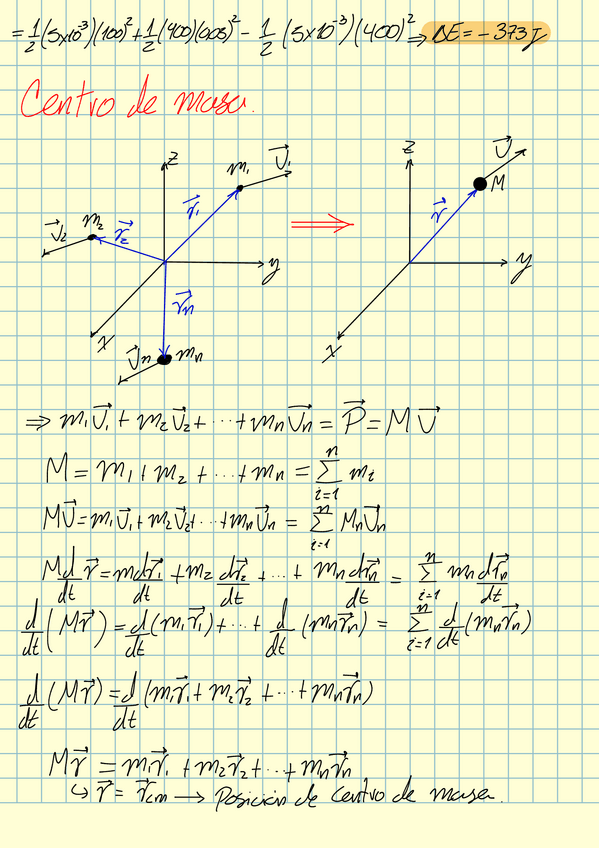 = 1/2 (5x10⁻³)(100)² + 1/2 (400)(0.05)² - 1/2 (5x10⁻³)(400)² ⇒ ΔE = -373J
Centro de masa.
z m₁ v⃗₁ z v⃗
v⃗₂ m₂ r⃗₂ r⃗₁ ⇒ r⃗ M
y y
r⃗n
x x
v⃗n mn
⇒ m₁v⃗₁ + m₂v⃗₂ + ... + mnv⃗n = P⃗ = Mv⃗
M = m₁ + m₂ + ... + mn = Σⁿᵢ₌₁ mᵢ
Mv⃗ = m₁v⃗₁ + m₂v⃗₂ + ... + mnv⃗n = Σⁿᵢ₌₁ Mnv⃗n
M d/dt r⃗ = m dr⃗₁/dt + m₂ dr⃗₂/dt + ... + mn dr⃗n/dt = Σⁿᵢ₌₁ mn dr⃗n/dt
d/dt (Mr⃗) = d/dt (m₁r⃗₁) + ... + d/dt (mnr⃗n) = Σⁿᵢ₌₁ d/dt (mnr⃗n)
d/dt (Mr⃗) = d/dt (m₁r⃗₁ + m₂r⃗₂ + ... + mnr⃗n)
Mr⃗ = m₁r⃗₁ + m₂r⃗₂ + ... + mnr⃗n
↪ r⃗ = r⃗cm → Posición de centro de masa.